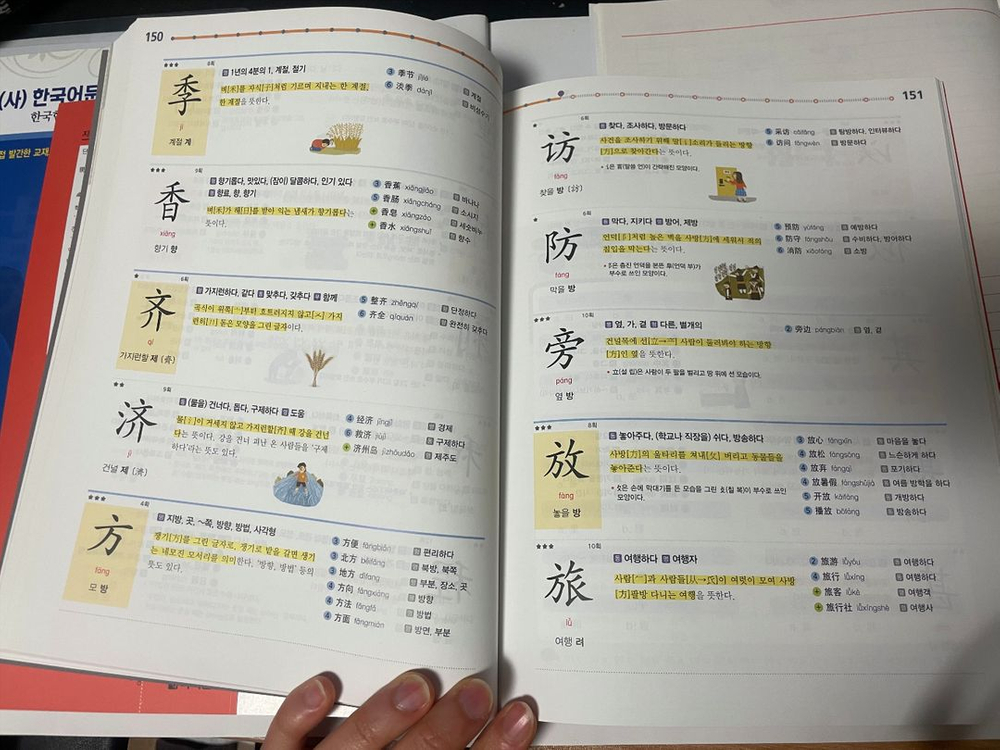 (사) 한국어문
한국한
접 발간한 교재
150
★★★
8획
季
jì
계절 계
명 1년의 4분의 1, 계절, 절기
벼[禾]를 자식[子]처럼 기르며 지내는 한 계절,
한 계절을 뜻한다.
3 季节 jìjié 명 계절
6 淡季 dànjì 명 비성수기
★★★
9획
香
xiāng
향기 향
형 향기롭다, 맛있다, (잠이) 달콤하다, 인기 있다
명 향료, 향, 향기
벼[禾]가 해[日]를 받아 익는 냄새가 향기롭다는
뜻이다.
3 香蕉 xiāngjiāo 명 바나나
5 香肠 xiāngcháng 명 소시지
+ 香皂 xiāngzào 명 세숫비누
+ 香水 xiāngshuǐ 명 향수
★
6획
齐
qí
가지런할 제 (齊)
형 가지런하다, 같다 동 맞추다, 갖추다 부 함께
곡식이 위쪽부터 흐트러지지 않고 가지
런히 돋은 모양을 그린 글자이다.
5 整齐 zhěngqí 형 단정하다
6 齐全 qíquán 형 완전히 갖추다
★★
9획
济
jì
건널 제 (濟)
동 (물을) 건너다, 돕다, 구제하다 명 도움
물[氵]이 거세지 않고 가지런할[齐] 때 강을 건넌
다는 뜻이다. 강을 건너 피난 온 사람들을 '구제
하다'라는 뜻도 있다.
4 经济 jīngjì 명 경제
6 救济 jiùjì 동 구제하다
+ 济州岛 jìzhōudǎo 명 제주도
★★★
4획
方
fāng
모 방
명 지방, 곳, ~쪽, 방향, 방법, 사각형
쟁기[方]를 그린 글자로, 쟁기로 밭을 갈면 생기
는 네모진 모서리를 의미한다. '방향, 방법' 등의
뜻도 있다.
3 方便 fāngbiàn 형 편리하다
3 北方 běifāng 명 북방, 북쪽
3 地方 dìfang 명 부분, 장소, 곳
4 方向 fāngxiàng 명 방향
4 方法 fāngfǎ 명 방법
4 方面 fāngmiàn 명 방면, 부분
151
★
6획
访
fǎng
찾을 방 (訪)
동 찾다, 조사하다, 방문하다
사건을 조사하기 위해 말[讠]소리가 들리는 방향
[方]으로 찾아간다는 뜻이다.
• 讠은 言(말씀 언)이 간략해진 모양이다.
5 采访 cǎifǎng 동 탐방하다, 인터뷰하다
6 访问 fǎngwèn 동 방문하다
★
6획
防
fáng
막을 방
동 막다, 지키다 명 방어, 제방
언덕[阝]처럼 높은 벽을 사방[方]에 세워서 적의
침입을 막는다는 뜻이다.
• 阝은 층진 언덕을 본뜬 阜(언덕 부)가
부수로 쓰인 모양이다.
5 预防 yùfáng 동 예방하다
6 防守 fángshǒu 동 수비하다, 방어하다
6 消防 xiāofáng 명 소방
★★★
10획
旁
páng
옆 방
명 옆, 가, 곁 형 다른, 별개의
건널목에 선 사람이 둘러봐야 하는 방향
[方]인 옆을 뜻한다.
• 立(설 립)은 사람이 두 팔을 벌리고 땅 위에 선 모습이다.
2 旁边 pángbiān 명 옆, 곁
★★★
8획
放
fàng
놓을 방
동 놓아주다, (학교나 직장을) 쉬다, 방송하다
사방[方]의 울타리를 쳐내[攵] 버리고 동물들을
놓아준다는 뜻이다.
• 攵은 손에 막대기를 든 모습을 그린 攴(칠 복)이 부수로 쓰인
모양이다.
3 放心 fàngxīn 동 마음을 놓다
4 放松 fàngsōng 동 느슨하게 하다
4 放弃 fàngqì 동 포기하다
4 放暑假 fàngshǔjià 동 여름 방학을 하다
5 开放 kāifàng 동 개방하다
5 播放 bōfàng 동 방송하다
★★★
10획
旅
lǚ
여행 려
동 여행하다 명 여행자
사람과 사람들이 여럿이 모여 사방
[方]팔방 다니는 여행을 뜻한다.
2 旅游 lǚyóu 동 여행하다
4 旅行 lǚxíng 동 여행하다
+ 旅客 lǚkè 명 여행객
+ 旅行社 lǚxíngshè 명 여행사